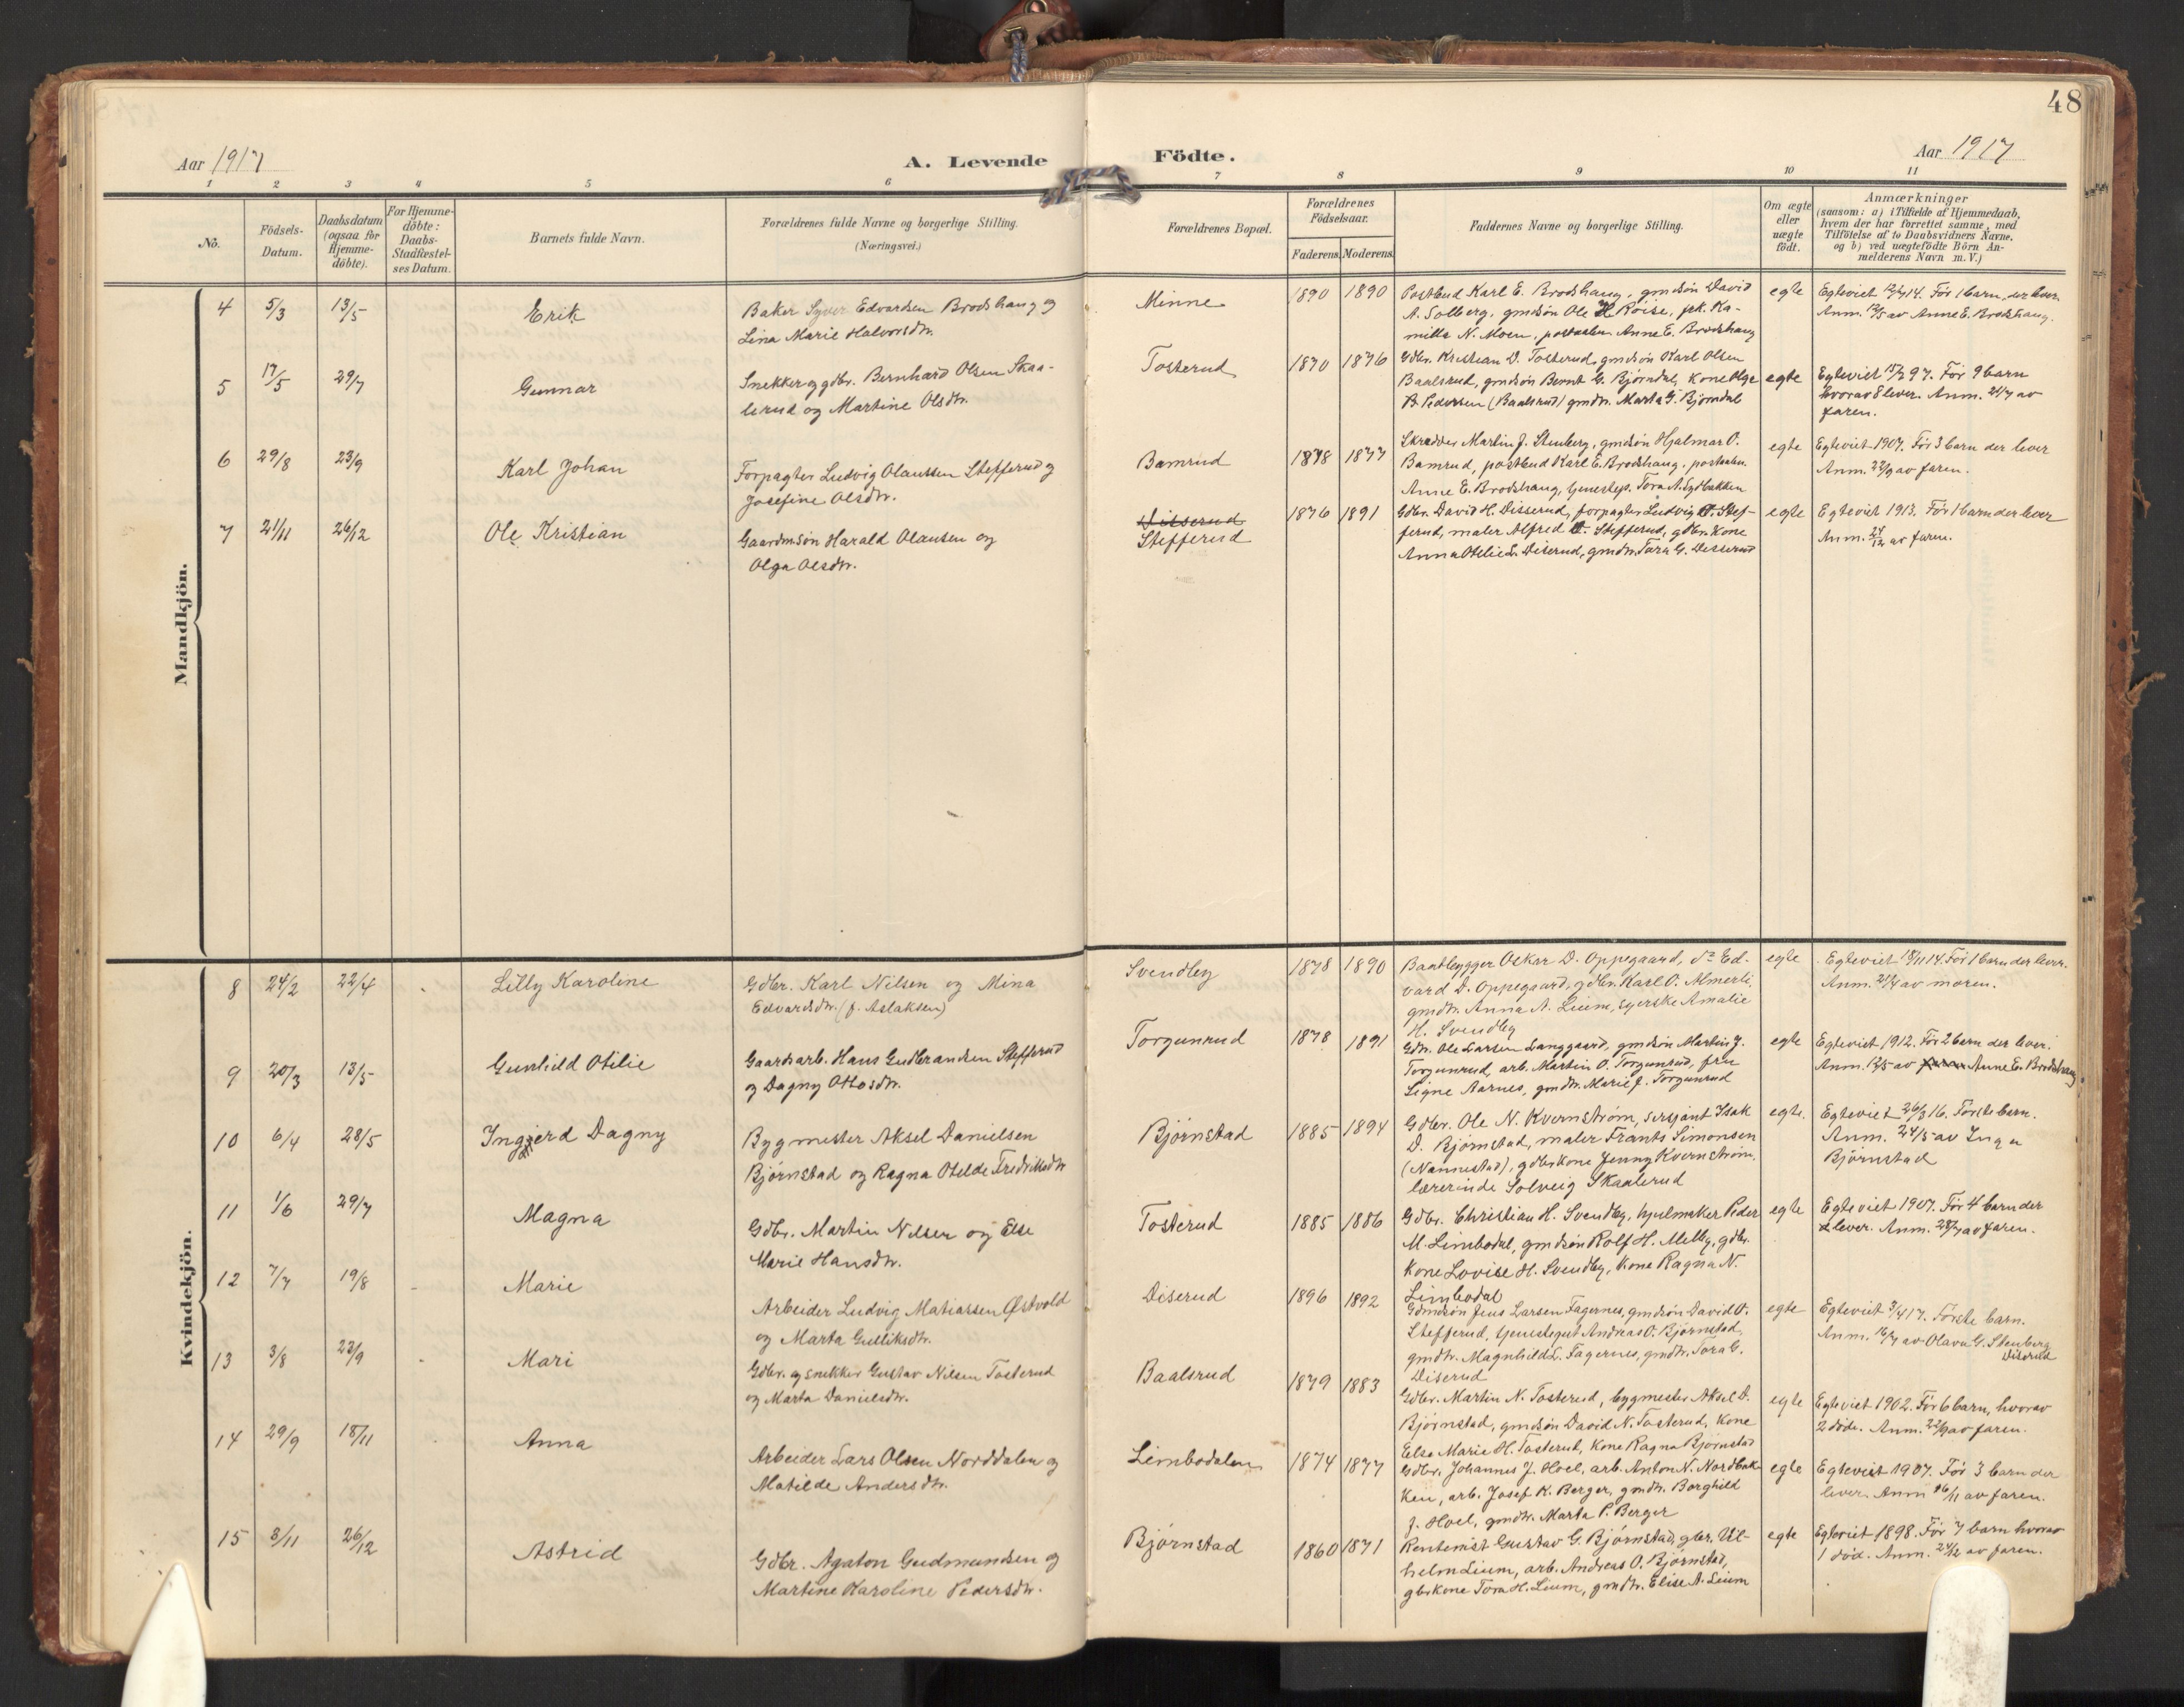 48
Aar 1917
A. Levende Födte.
Aar 1917
1 2 3 4 5 6 7 8 9 10 11
No.
Födsels-
Datum.
Daabsdatum
(ogsaa for
Hjemme-
döbte).
For Hjemme-
döbte:
Daabs-
Stadfæstel-
ses Datum.
Barnets fulde Navn.
Forældrenes fulde Navne og borgerlige Stilling.
(Næringsvei.)
Forældrenes Bopæl.
Forældrenes
Födselsaar.
Faderens. Moderens.
Faddernes Navne og borgerlige Stilling.
Om ægte
eller
uægte
födt.
Anmærkninger
(saasom: a) i Tilfælde af Hjemmedaab,
hvem der har forrettet samme, med
Tilföielse af to Daabsvidners Navne,
og b) ved uægtefödte Börn An-
melderens Navn m. V.)
Mandkjön.
4 5/3 13/5 Erik
Baker Syver Edvardsen Brodshaug og
Lina Marie Halvorsdtr.
Minne 1890 1890
Postbud Karl E. Brodshaug, gmdsön David
A. Solberg, gmdsön Ole H. Röise, frk. Ka-
milla N. Moen, postaabn. Anne E. Brodshaug
egte
Egteviet 12/4 14. Før 1 barn, der lever.
Anm. 12/5 av Anne E. Brodshaug.
5 17/5 29/7 Gunnar
Snekker og gdbr. Bernhard Olsen Skaa-
lerud og Martine Olsdtr.
Tosterud 1870 1876
Gdbr. Kristian D. Tosterud, gmdsön Karl Olsen
Baalsrud, gmdsön Bernt G. Bjørndal, kone Olga
B. Pedersen (Baalsrud) gmdtr. Marta G. Bjørndal
egte
Egteviet 97. Før 9 barn
hvorav 8 lever. Anm. 21/7 av
faren.
6 29/8 23/9 Karl Johan
Forpagter Ludvig Olaussen Stefferud og
Josefine Olsdtr.
Bamrud 1878 1877
Skrædder Martin J. Stenberg, gmdsön Hjalmar O.
Bamrud, postbud Karl E. Brodshaug, postaabn.
Anne E. Brodshaug, tjenestep. Tora A. Sydbakken
egte
Egteviet 1907. Før 3 barn der lever
Anm. 22/9 av faren.
7 21/11 26/12 Ole Kristian
Gaardmsøn Harald Olausen og
Olga Olsdtr.
Diserud
Stefferud
1876 1891
Gdbr. David H. Disserud, forpagter Ludvig O. Stef-
ferud, maler Alfred O. Stefferud, gdbr. kone
Anna Otilie L. Diserud, gmdtr. Tora G. Disserud
egte
Egteviet 1913. Før 1 barn der lever
Anm. 24/12 av faren.
Kvindekjön.
8 24/2 22/4 Lilly Karoline
Gdbr. Karl Nilsen og Mina
Edvardsdtr. (f. Aslaksen)
Svendby 1878 1890
Baatbygger Oskar D. Oppegaard, do Ed-
vard D. Oppegaard, gdbr. Karl O. Almerli,
gmdtr. Anna A. Lium, syerske Amalie
H. Svendby
egte
Egteviet 18/11 14. Før 1 barn der lever.
Anm. 21/4 av moren.
9 20/3 13/5 Gunhild Otilie
Gaardsarb. Hans Gudbrandsen Stefferud
og Dagny Ottosdtr.
Torgunrud 1878 1891
Gdbr. Ole Larsen Langgaard, gmdsön Martin J.
Torgunrud, arb. Martin O. Torgunrud, fru
Signe Aarnes, gmdtr. Marie J. Torgunrud
egte
Egteviet 1912. Før 2 barn der lever.
Anm. 12/5 av faren Anne E. Brodshaug
10 6/4 28/5 Ingjerd Dagny
Bygmester Aksel Danielsen
Bjørnstad og Ragna Otelde Fredriksdtr
Bjørnstad 1885 1894
Gdbr. Ole N. Kvernstrøm, sersjant Isak
D. Bjørnstad, maler Frants Simonsen
(Nannestad), gdbrkone Jenny Kvernstrøm,
lærerinde Solveig Skaalerud
egte.
Egteviet 26/3 16. Første barn.
Anm. 24/5 av Inga
Bjørnstad
11 1/6 29/7 Magna
Gdbr. Martin Nilsen og Else
Marie Hansdtr.
Tosterud 1885 1886
Gdbr. Christian H. Svendby, hjulmaker Peder
M. Limbodal, gmdsön Rolf H. Melby, gdbr.
kone Lovise H. Svendby, kone Ragna N.
Limbodal
egte
Egteviet 1907. Før 4 barn der
lever. Anm. 28/7 av faren.
12 7/7 19/8 Marie
Arbeider Ludvig Matiassen Østvold
og Marta Gulliksdtr.
Diserud 1896 1892
Gdmdsön Jens Larsen Fagernes, gmdsön David O.
Stefferud, tjenestegut Andreas O. Bjørnstad,
gmdtr. Magnhild L. Fagernes, gmdtr. Tora G.
Diserud
egte
Egteviet 3/4 17. Første barn.
Anm. 16/7 av Olava G. Stenberg
Diserud
13 3/8 23/9 Mari
Gdbr. og snekker Gustav Nilsen Tosterud
og Marta Danielsdtr.
Baalsrud 1879 1883
Gdbr. Martin N. Tosterud, bygmester Aksel D.
Bjørnstad, gmdsön David N. Tosterud, kone
Else Marie H. Tosterud, kone Ragna Bjørnstad
egte
Egteviet 1902. Før 6 barn, hvorav
2 døde. Anm. 22/9 av faren.
14 29/9 18/11 Anna
Arbeider Lars Olsen Norddalen og
Matilde Andersdtr.
Limbodalen 1874 1877
Gdbr. Johannes J. Hoel, arb. Anton N. Nordbak-
ken, arb. Josef K. Berger, gmdtr. Borghild
J. Hoel, gmdtr. Marta P. Berger
egte
Egteviet 1907. Før 3 barn der
lever. Anm 16/11 av faren.
15 3/11 26/12 Astrid
Gdbr. Agaton Gudmundsen og
Martine Karoline Pedersdtr.
Bjørnstad 1860 1871
Rentenist Gustav G. Bjørnstad, gbr. Vil-
helm Lium, arb. Andreas O. Bjørnstad,
gbrkone Tora H. Lium, gmdtr. Elise A. Lium
egte
Egteviet 1898. Før 7 barn hvorav
1 død. Anm. 24/12 av faren.